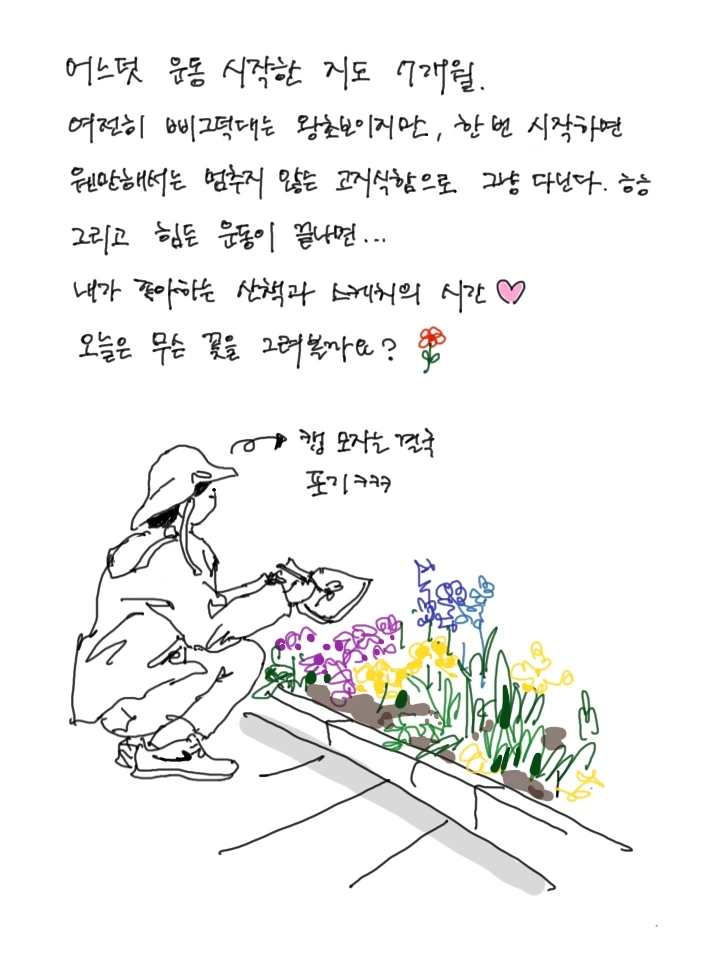 어느덧 운동 시작한 지도 7개월.
여전히 삐그덕대는 왕초보이지만, 한 번 시작하면
웬만해서는 멈추지 않는 고지식함으로 그냥 다닌다. ㅎㅎ
그리고 힘든 운동이 끝나면...
내가 좋아하는 산책과 스케치의 시간
오늘은 무슨 꽃을 그려볼까요?
캡 모자는 결국
포기 ㅋㅋㅋ